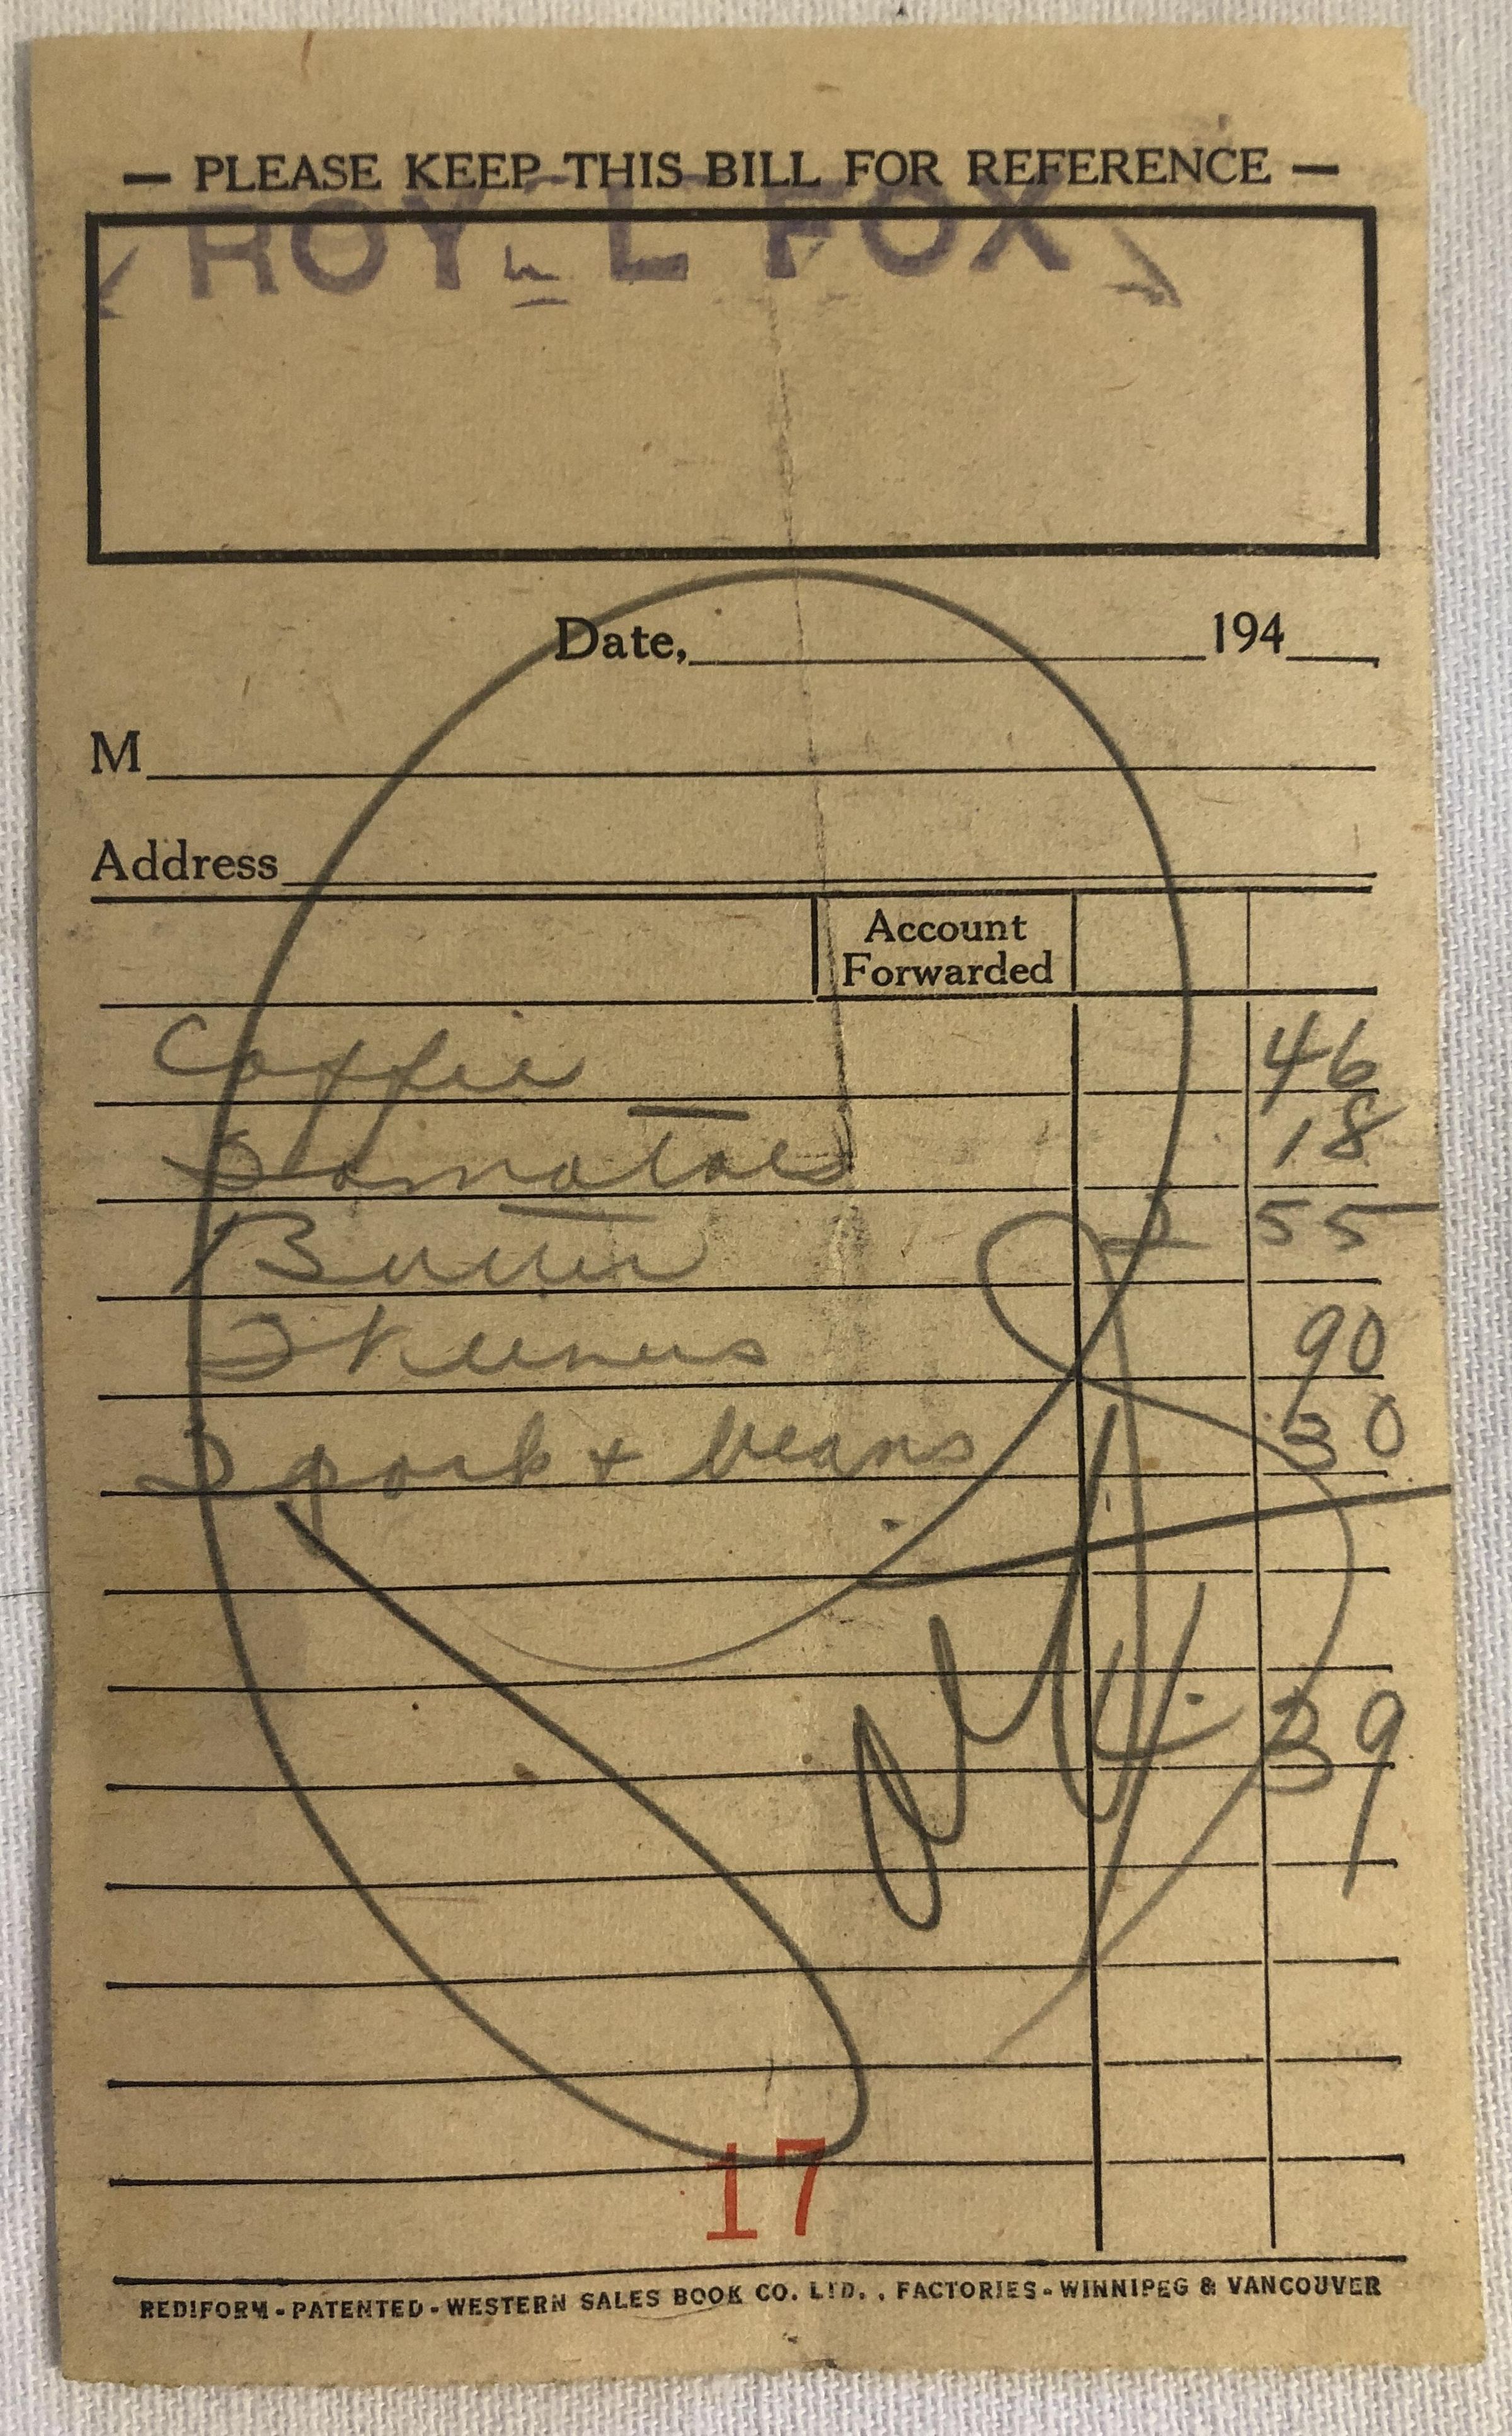 — PLEASE KEEP THIS BILL FOR REFERENCE —
ROY L FOX
Date, 194
M
Address
Account
Forwarded
Coffee 46
Tomatoes 18
Butter 2 55
90
2 pork + beans 30
4. 39
17
REDIFORM - PATENTED - WESTERN SALES BOOK CO. LTD. , FACTORIES - WINNIPEG & VANCOUVER